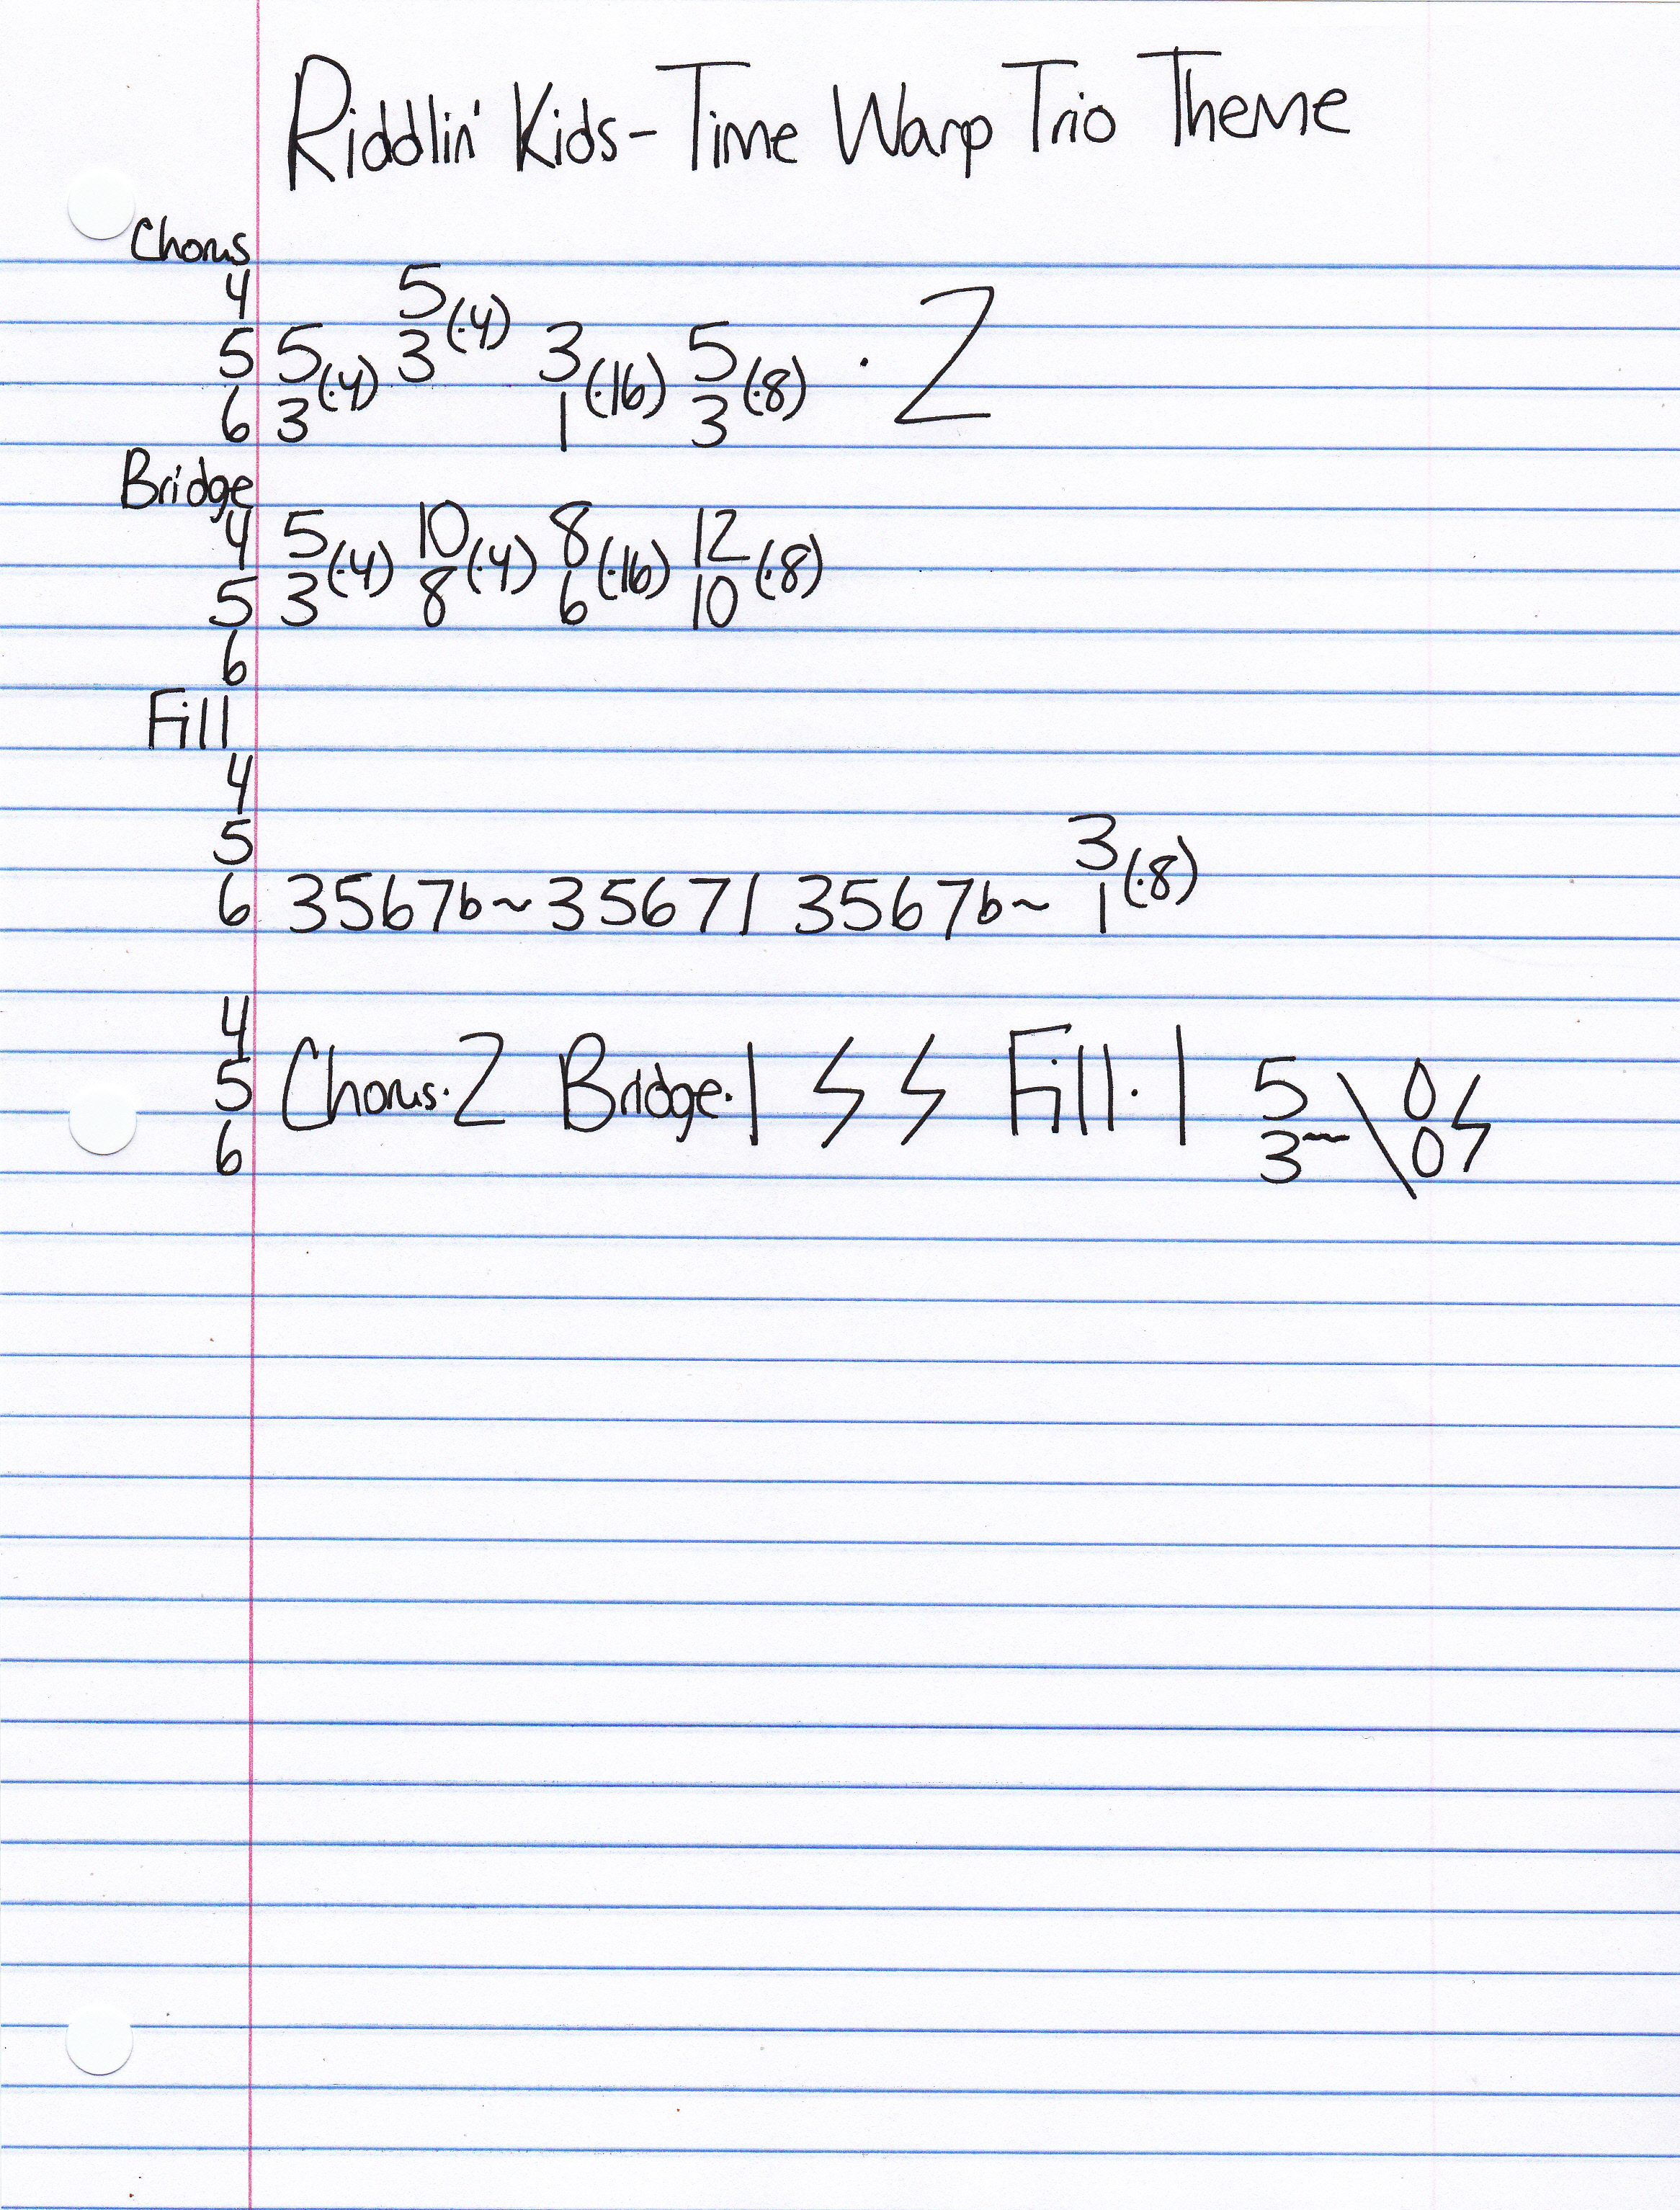 Riddlin' Kids - Time Warp Trio Theme
Chorus
4 5
5 5 (·4) 3 (·4) 3 (·16) 5 (·8) · 2
6 3 1 3
Bridge
4 5 (·4) 10 (·4) 8 (·16) 12 (·8)
5 3 8 6 10
6
Fill
4
5 3
6 3567b~3567/ 3567b~ 1 (·8)
4
5 Chorus·2 Bridge·1 ϟ ϟ Fill·1 5 \ 0 ϟ
6 3~ 0